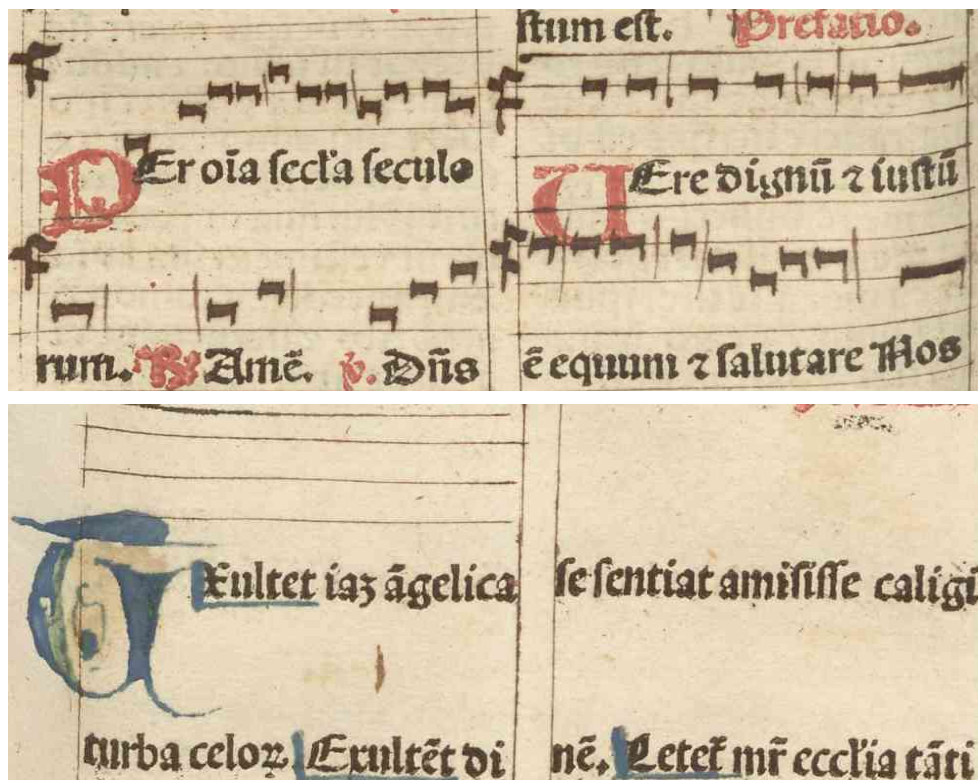 Per oīa secl'a seculo
rum. ℟ Amē. ℣. Dn̄s
stum est. Prefatio.
Uere dignū ⁊ iustū
ē equum ⁊ salutare Nos
Exultet iaꝫ āgelica
turba celoꝝ. Exultēt di
se sentiat amisisse caligi
nē. Letet᷑ mr̄ eccl'ia tāti